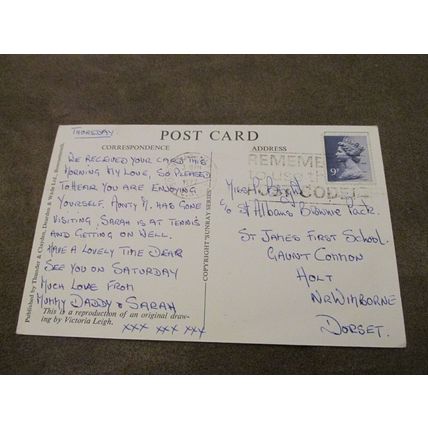 Thursday.
POST CARD
CORRESPONDENCE
ADDRESS
We received your card this
morning my love, so pleased
to hear you are enjoying
yourself. Monty M. has gone
visiting. Sarah is at tennis
and getting on well.
Have a lovely time dear
See you on Saturday
Much love from
Mummy Daddy & Sarah
This is a reproduction of an original draw-
ing by Victoria Leigh.
xxx xxx xxx
Published by Thunder & Clayden,
COPYRIGHT 'SUNRAY SERIES'
REMEMBER
TO USE THE
POSTCODE
9P
Miss
c/o St Albans Brownie Pack.
St James First School.
Gaunt Common
Holt
Nr Wimborne
Dorset.